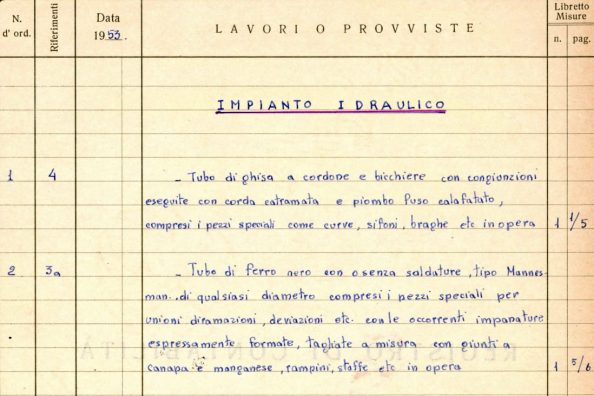 N. d' ord.
Riferimenti
Data
1953.
LAVORI O PROVVISTE
Libretto Misure
n. pag.
IMPIANTO IDRAULICO
1 4 - Tubo di ghisa a cordone e bicchiere con congiunzioni
eseguite con corda catramata e piombo fuso calafatato,
compresi i pezzi speciali come curve, sifoni, braghe etc in opera 1 1/5
2 3a - Tubo di ferro nero con o senza saldature, tipo Mannes-
man.. di qualsiasi diametro compresi i pezzi speciali per
unioni diramazioni, deviazioni etc. con le occorrenti impanature
espressamente formate, tagliate a misura con giunti a
canapa e manganese, rampini, staffe etc in opera 1 5/6
REGISTRO DI CONTABILITÀ